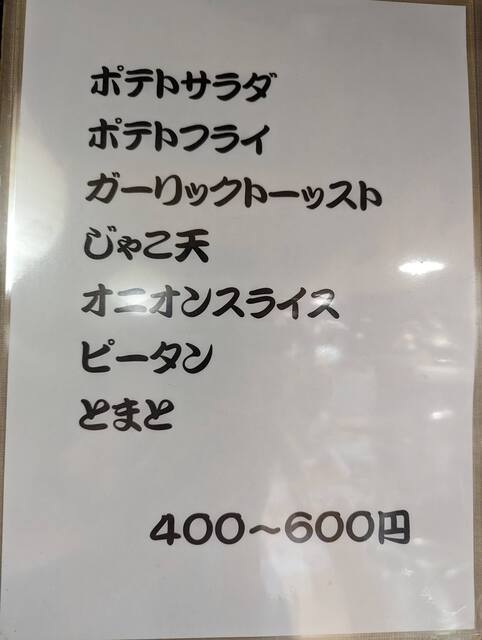 ポテトサラダ
ポテトフライ
ガーリックトーッスト
じゃこ天
オニオンスライス
ピータン
とまと
400～600円